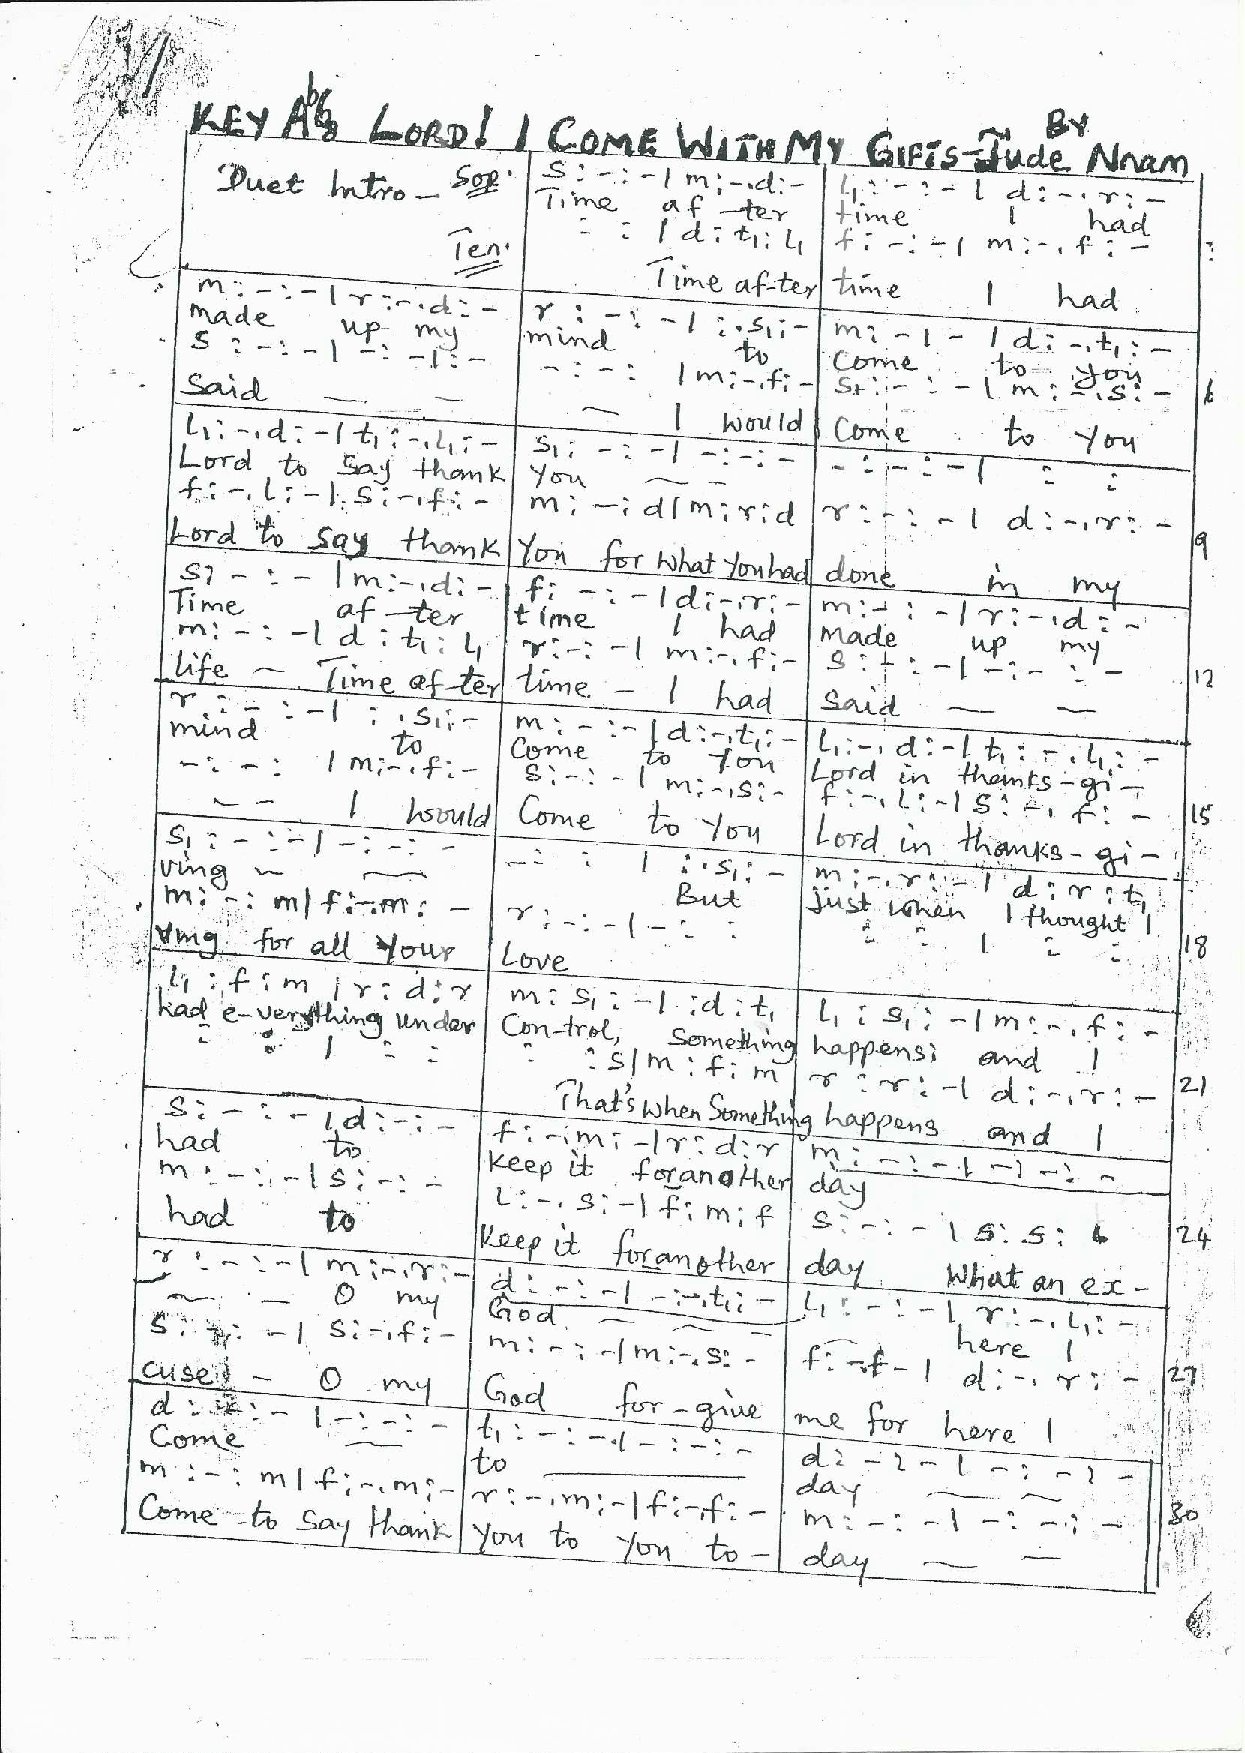 KEY Ab 6/8 LORD! I COME WITH MY GIFTS - Jude Nnam
BY
Duet Intro - Sop. s : - : - | m : - . d : - l₁ : - : - | d : - . r : -
Time af - ter time I had
: : | d : t₁ : l₁ f : - : - | m : - . f : -
Ten. Time af-ter time I had
m : - : - | r : - . d : - r : - : - | : . s₁ : - m : - | - | d : - . t₁ : -
made up my mind to Come to you
s : - : - | - : - | : - - : - : | m : - . f : - s : - : - | m : - . s : - 6
Said — — — I would Come to You
l₁ : - . d : - | t₁ : - . l₁ : - s₁ : - : - | - : - : - - : - : - | : :
Lord to say thank You — —
f : - . l : - | s : - . f : - m : - : d | m : r : d r : - : - | d : - . r : -
Lord to say thank You for what You had done in my 9
s : - : - | m : - . d : - f : - : - | d : - . r : - m : - : - | r : - . d : -
Time af - ter time I had made up my
m : - : - | d : t₁ : l₁ r : - : - | m : - . f : - s : - : - | - : - : - 12
life — Time af-ter time - I had Said — —
r : - : - | : . s₁ : - m : - : - | d : - . t₁ : - l₁ : - . d : - | t₁ : - . l₁ : -
mind to Come to You Lord in thanks - gi -
- : - : | m : - . f : - s : - : - | m : - . s : - f : - . l : - | s : - . f : - 15
— — I would Come to You Lord in thanks - gi -
s₁ : - : - | - : - : - - : : | : . s₁ : - m : - . r : - | d : r : t₁
ving — — But just when I thought I
m : - : m | f : - . m : - r : - : - | - : : : : | : : 18
ving for all Your Love
l₁ : f : m | r : d : r m : s₁ : - | : d : t₁ l₁ : s₁ : - | m : - . f : -
had e-verything under Con-trol, Something happens; and I
: : | : : : : s | m : f : m r : r : - | d : - . r : - 21
That's when Something happens and I
s : - : - | d : - : - f : - . m : - | r : d : r m : - : - | - : - : -
had to keep it for another day
m : - : - | s : - : - l : - . s : - | f : m : f s : - : - | s : s : l 24
had to keep it for another day What an ex -
r : - : - | m : - . r : - d : - : - | - : - . t₁ : - l₁ : - : - | r : - . l₁ : -
— — O my God — — — here I
s : - : - | s : - . f : - m : - : - | m : - . s : - f : - f - | d : - . r : - 27
cuse! - O my God for - give me for here I
d : - : - | - : - : - t₁ : - : - | - : - : - d : - : - | - : - : -
Come — to — day — —
m : - : m | f : - . m : - r : - . m : - | f : - . f : - m : - : - | - : - : - 30
Come - to Say thank You to You to - day — —